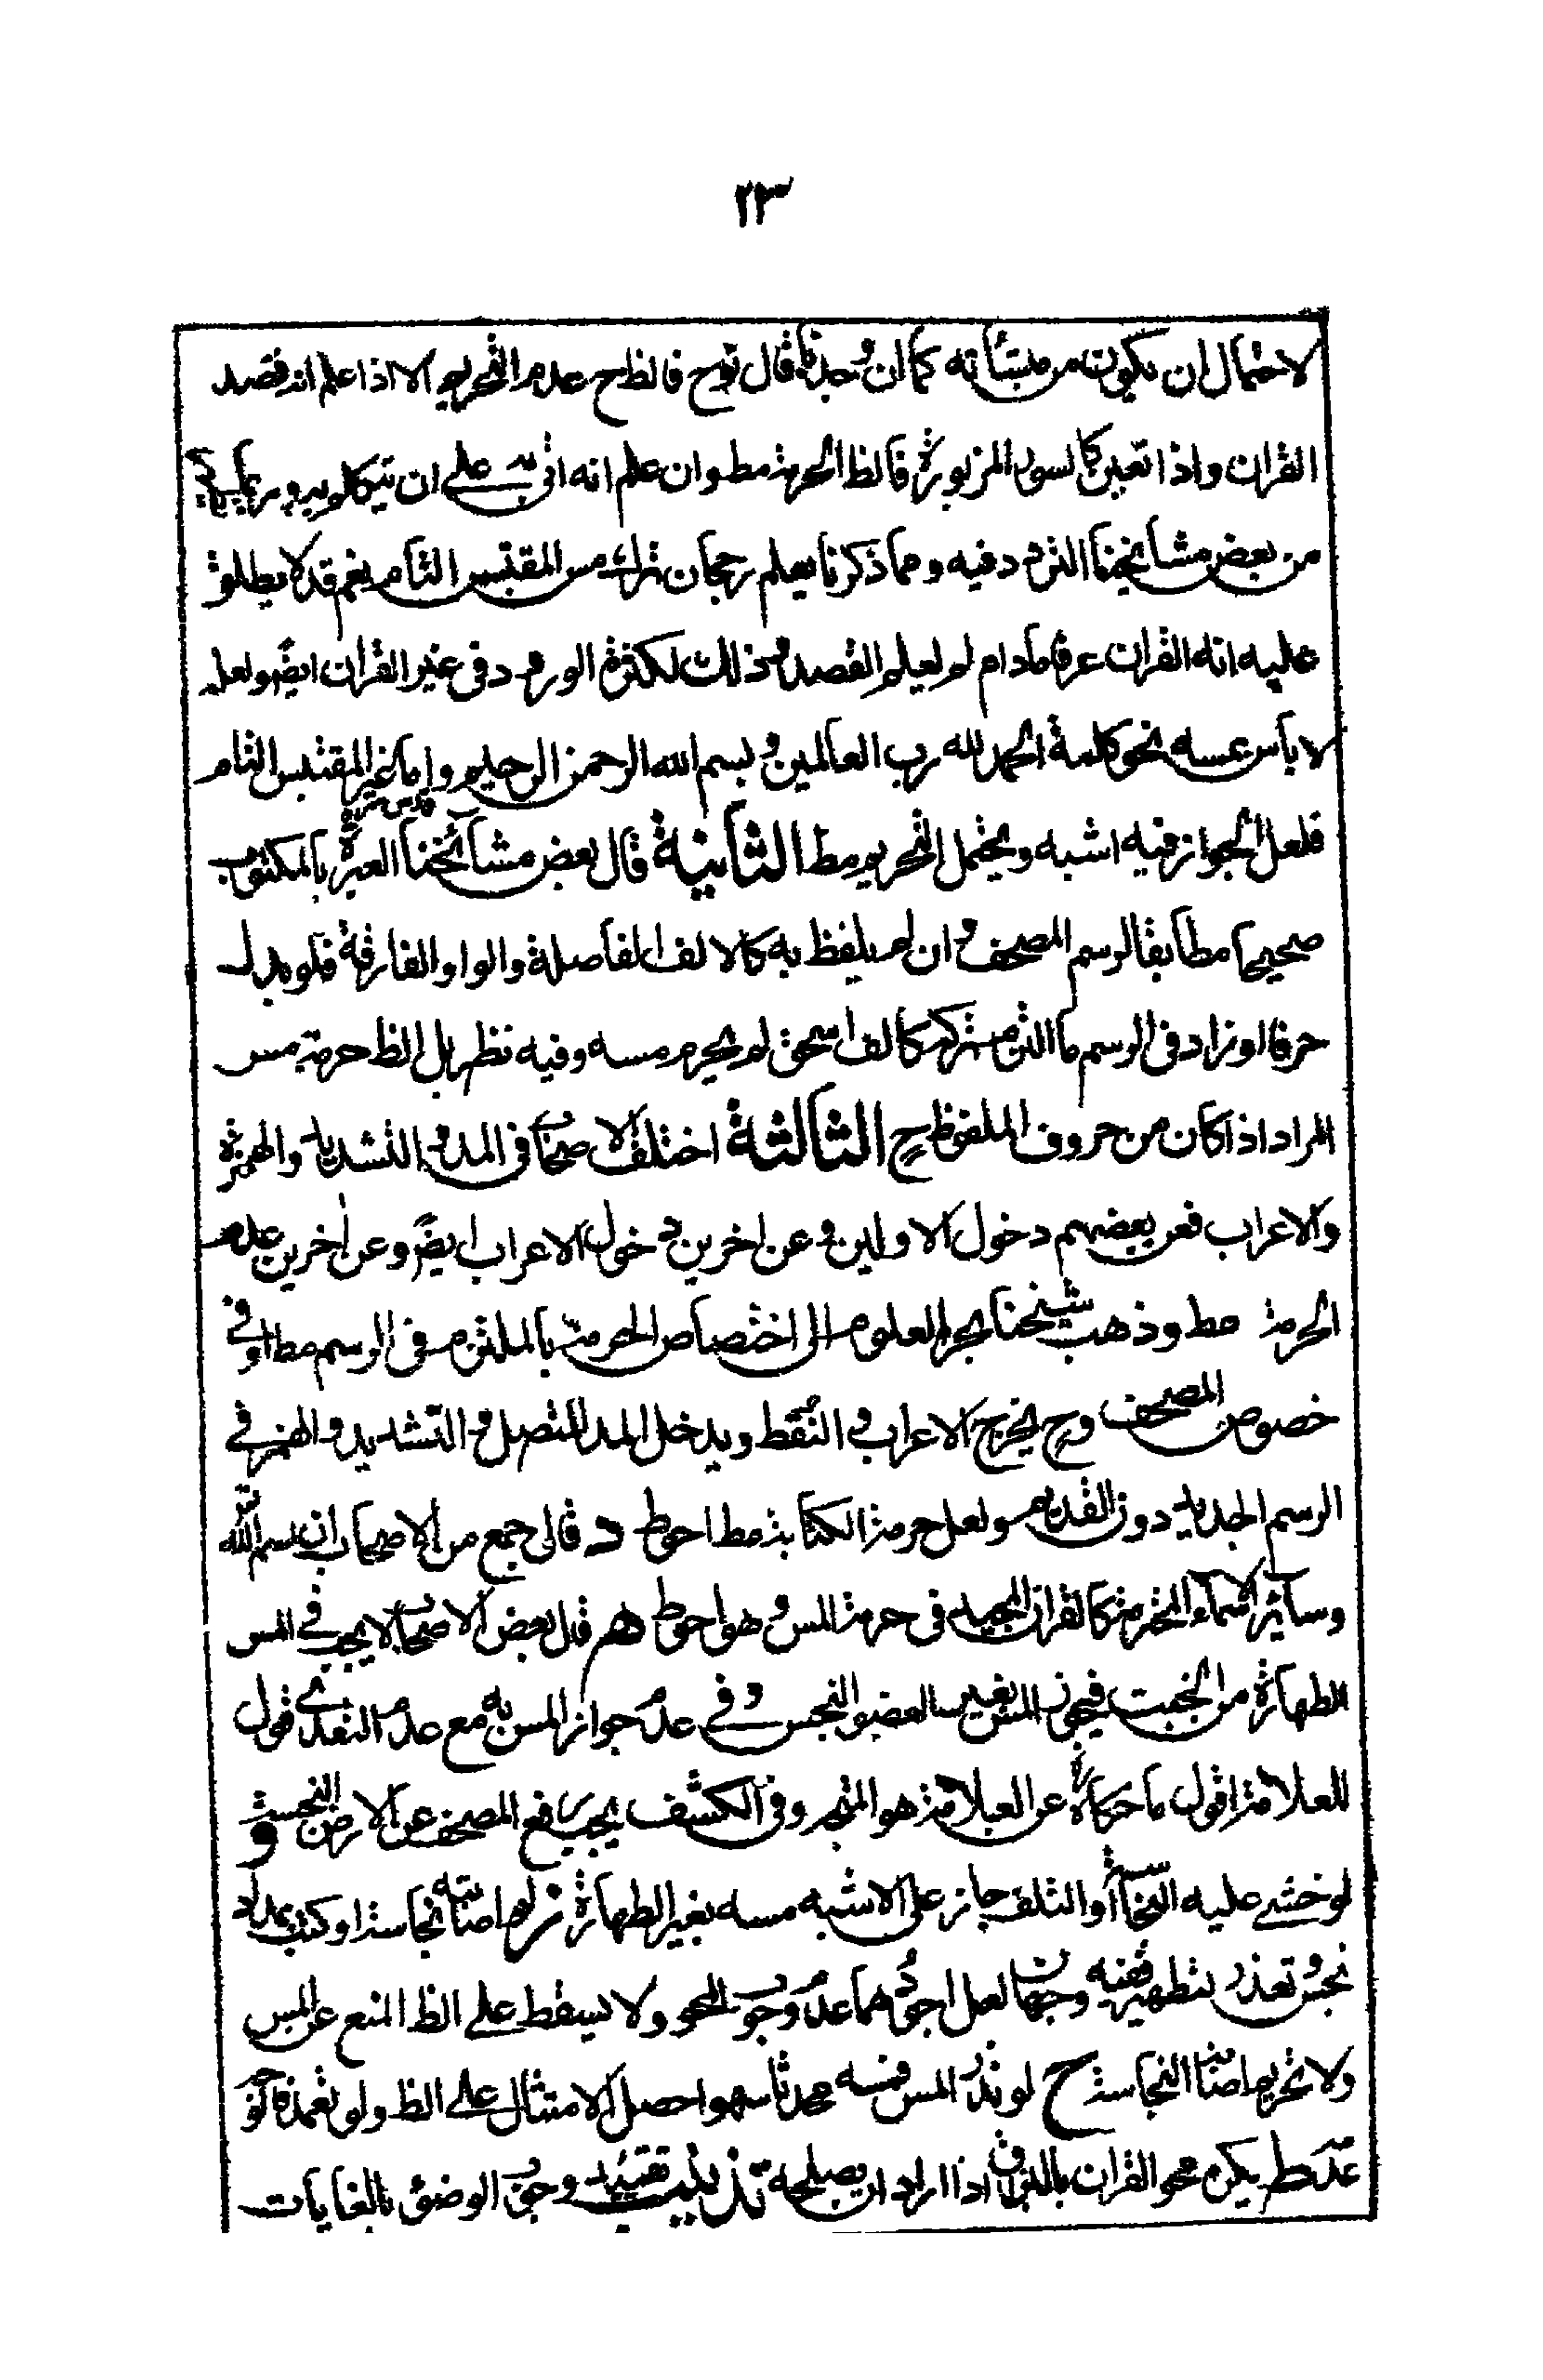 ٢٣
لاحتمال ان يكون من منشأته كما ان وجدنا قال نوح فالظ ح عدم التحريم الا اذا علم انه قصد
القران واذا تعين كالسور المزبورة فالظ الحرمة مطـ وان علم انه اتى على ان
من بعض مشائخنا التردد فيه ومما ذكرنا يعلم رجحان ترك مس المقتبس التام نعم قد لا يطلق
عليه انه القران عرفا مادام لم يعلم القصد وذلك لكثرة الورود فى غير القران ايضً ولعله
لا بأس بمسه نحو كلمة الحمد لله رب العالمين و بسم الله الرحمن الرحيم واما غير المقتبس التام
فلعل الجواز فيه اشبه ويحتمل التحريم مطـ الثانية قال بعض مشائخنا قدس سره العبرة بالمكتوب
صحيحا مطابقا لرسم المصحف وان لم يلفظ به كالالف الفاصلة والواو الفارقة فلو بدل
حرفا او زاد فى الرسم ما التزم تركه كالف اسحق لم يحرم مسه وفيه نظر بل الظ حرمة مس
المراد اذا كان من حروف الملفوظ ح الثالثة اختلف الاصحاب فى المد و التشديد والهمزة
والاعراب فعن بعضهم دخول الاولين و عن اخرين دخول الاعراب ايضً وعن اخرين عدم
الحرمة مطـ وذهب شيخنا بحر العلوم الى اختصاص الحرمة بالملتزم فى الرسم مطـ او فى
خصوص المصحف وح يخرج الاعراب و النقط ويدخل المد المتصل و التشديد و الهمز فى
الرسم الجديد دون القديم ولعل حرمة الكتابة مطـ احوط د قال جمع من الاصحاب ان اسم الله
وسائر الاسماء المحترمة كالقران المجيد فى حرمة المس و هو احوط هـ قال بعض الاصحاب لا يجب فى المس
الطهارة من الخبث فيجوز المس بغير العضو النجس و فى عدم جواز المس به مع عدم التعدى قول
للعلامة اقول ما حكاه عن العلامة هو المتجه وفى الكشف يجب رفع المصحف عن الارض النجسة و
لو خشى عليه النجاسة او التلف جاز على الاشبه مسه بغير الطهارة ز لو اصابته نجاسة او كتب بمداد
نجس و تعذر تطهيره ففيه وجهان لعل اجودهما عدم وجوب المحو ولا يسقط على الظ المنع عن المس
ولا تحريم اصابة النجاسة ح لو نذر المس فمسه محدثا سهوا حصل الامتثال على الظ ولو تعمد فالاقوى
عدمه ط يكره محو القران بالبزاق اذا اراد ان يصلحه تذنيب تقييد وجوب الوضوء بالغايات